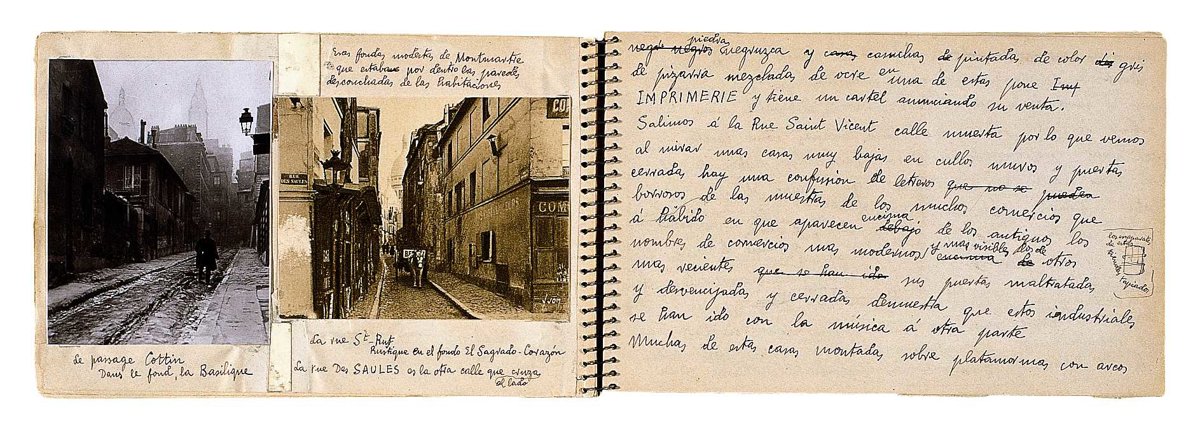 Esas fondas modestas de Montmartre
que estaban por dentro las paredes
desconchadas de las habitaciones
RUE
DES SAULES
CO
COM
YVON
de passage Cottin
Dans le fond, la Basilique
La rue St-Rut
Rustique en el fondo El Sagrado-Corazón
La rue Des SAULES es la otra calle que cruza
al lado
piedra
negra negros negruzca y casas canchas de pintada, de color dis gris
de pizarra mezcladas de ocre en una de estas pone Imp
IMPRIMERIE y tiene un cartel anunciando su venta.
Salimos á la Rue Saint Vicent calle muerta por lo que vemos
al mirar unas casas muy bajas en cullos muros y puertas
cerradas hay una confusión de letreros que no se pueden
borrosos de las muestras de los muchos comercios que
á habido en que aparecen encima debajo de los antiguos los
nombres de comercios mas modernos y mas visibles los de encima de otros
mas recientes que se han ido sus puertas maltratadas
y desvencijadas y cerradas demuestra que estos industriales
se han ido con la música á otra parte
Muchas de estas casas montadas sobre platamormas con arcos
los escaparates
de estas
tapiados